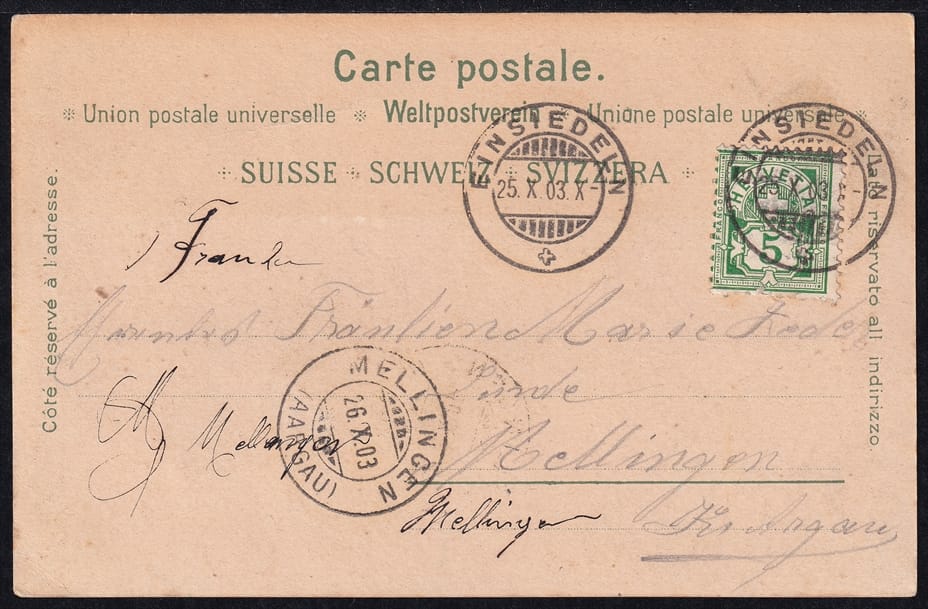 Carte postale.
✻ Union postale universelle ✻ Weltpostverein ✻ Unione postale universale ✻
SUISSE SCHWEIZ SVIZZERA
Côté réservé à l'adresse.
Lato riservato all indirizzo.
EINSIEDELN
25. X. 03. X-
EINSIEDELN
25. X. 03.
FRANCO
HELVETIA
5
Fräulien Marie
Mellingen
MELLINGEN
26. X. 03
(AARGAU)
Mellingen
Argau